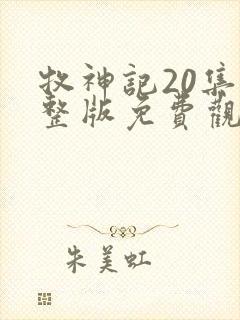 牧神記20集
整版免費觀
朱美虹